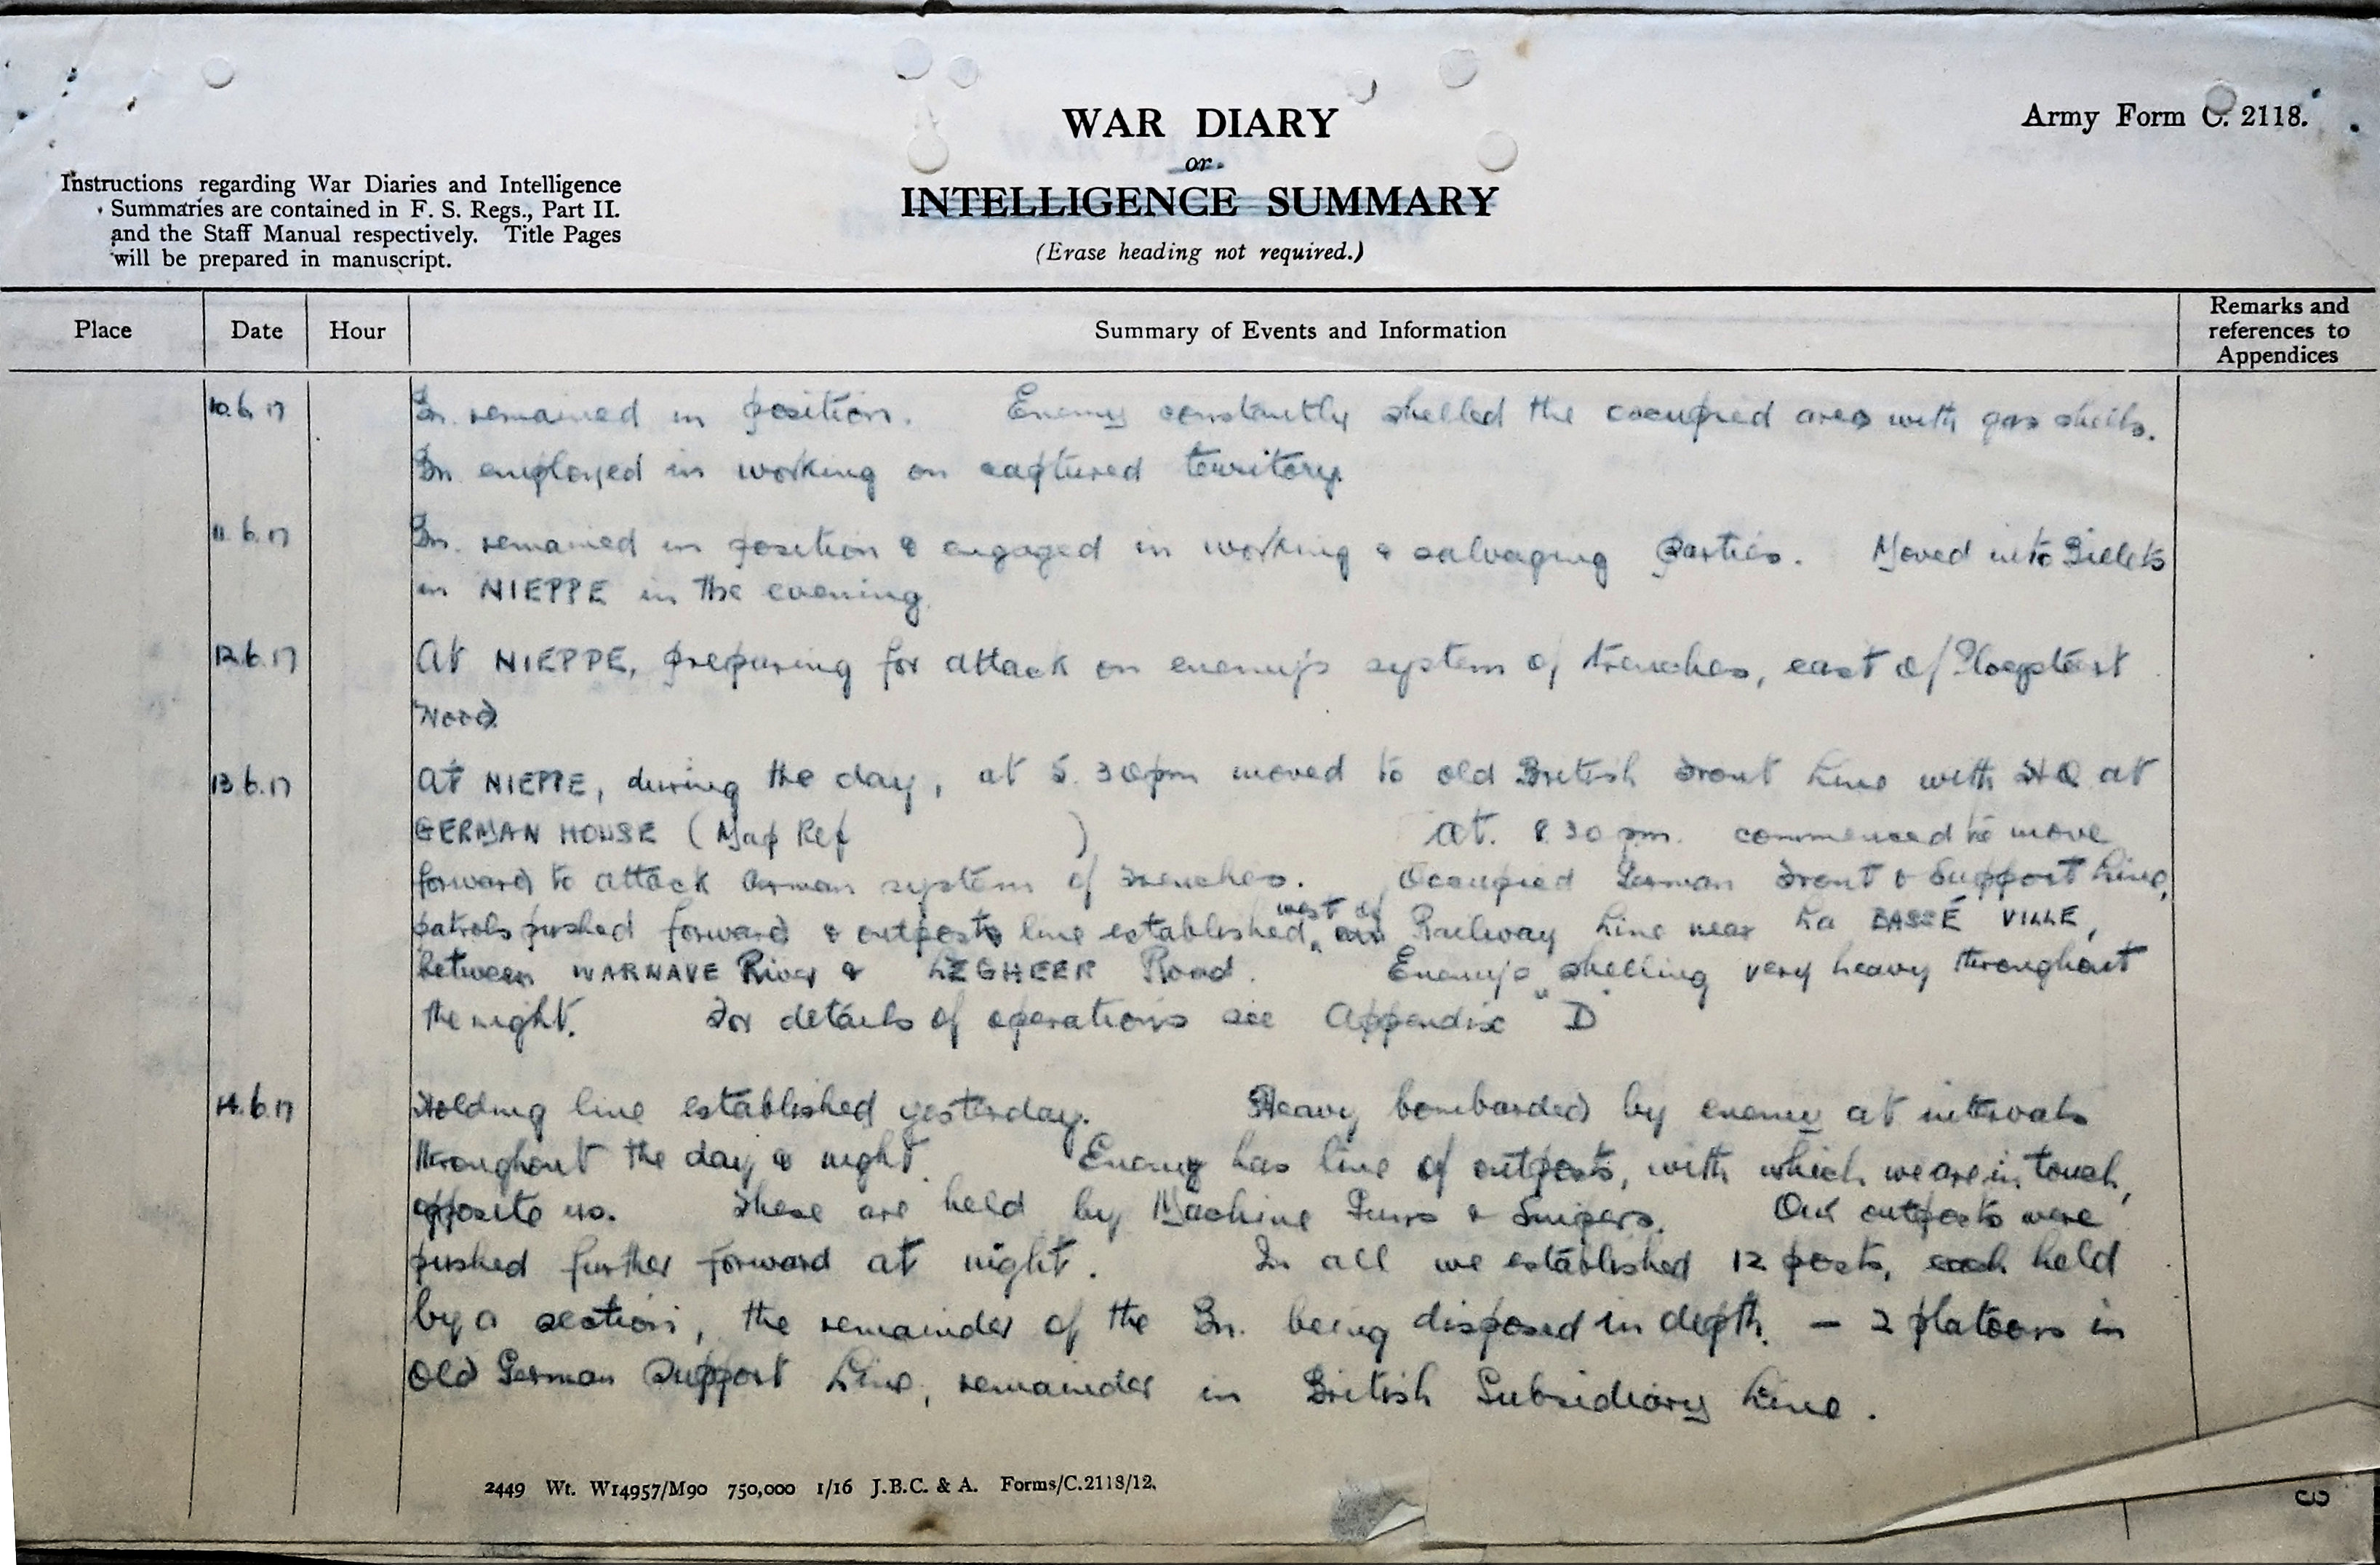 WAR DIARY
or
INTELLIGENCE SUMMARY
(Erase heading not required.)
Army Form C. 2118.
Instructions regarding War Diaries and Intelligence
Summaries are contained in F. S. Regs., Part II.
and the Staff Manual respectively. Title Pages
will be prepared in manuscript.
Place Date Hour Summary of Events and Information Remarks and
references to
Appendices
10.6.17 Bn. remained in position. Enemy constantly shelled the occupied area with gas shells.
Bn employed in working on captured territory.
11.6.17 Bn. remained in position & engaged in working & salvaging Parties. Moved into Billets
in NIEPPE in the evening.
12.6.17 At NIEPPE, preparing for attack on enemy's system of trenches, east of Ploegsteert
Wood.
13.6.17 At NIEPPE, during the day, at 5.30pm moved to old British Front Line with HQ at
GERMAN HOUSE (Map Ref ) At. 8.30 pm. commenced to move
forward to attack German system of Trenches. Occupied German Front & Support Line,
patrols pushed forward & outposts line established, west of Railway Line near La BASSÉ VILLE,
between WARNAVE River & LEGHEER Road. Enemy's shelling very heavy throughout
the night. For details of operations see Appendix "D"
14.6.17 Holding line established yesterday. Heavy bombarded by enemy at intervals
throughout the day & night. Enemy has line of outposts, with which we are in touch,
opposite us. These are held by Machine Guns & Snipers. Our outposts were
pushed further forward at night. In all we established 12 posts, each held
by a section, the remainder of the Bn. being disposed in depth. — 2 platoons in
Old German Support Line, remainder in British Subsidiary Line.
2449 Wt. W14957/M90 750,000 1/16 J.B.C. & A. Forms/C.2118/12.
3